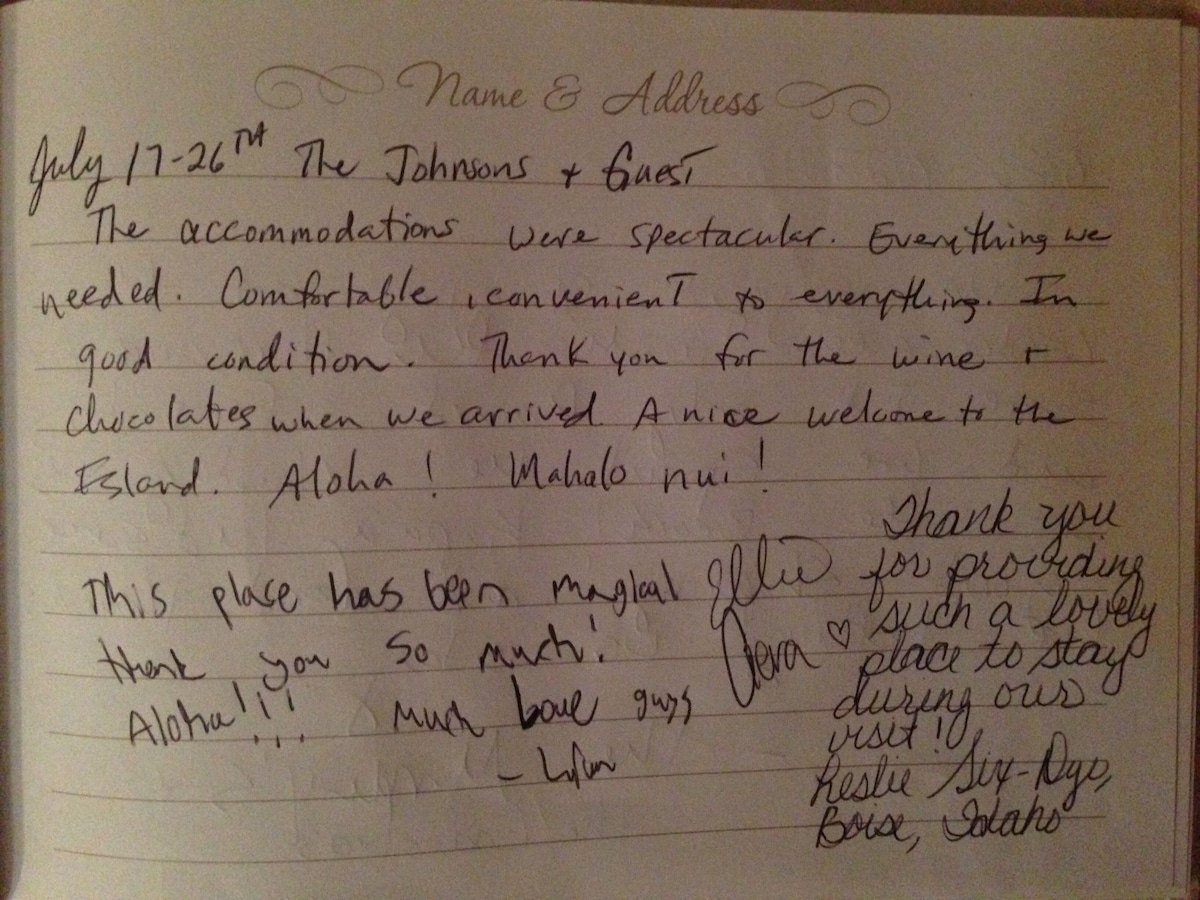 Name & Address
July 17-26TH The Johnsons + Guest
The accommodations were spectacular. Everything we
needed. Comfortable, convenient to everything. In
good condition. Thank you for the wine +
chocolates when we arrived. A nice welcome to the
Island. Aloha! Mahalo nui!
This place has been magical
thank you so much!
Aloha!!! Much love guys
Ellie
♡
Thank you
for providing
such a lovely
place to stay
during our
visit!
Leslie Six-Dyo,
Boise, Idaho